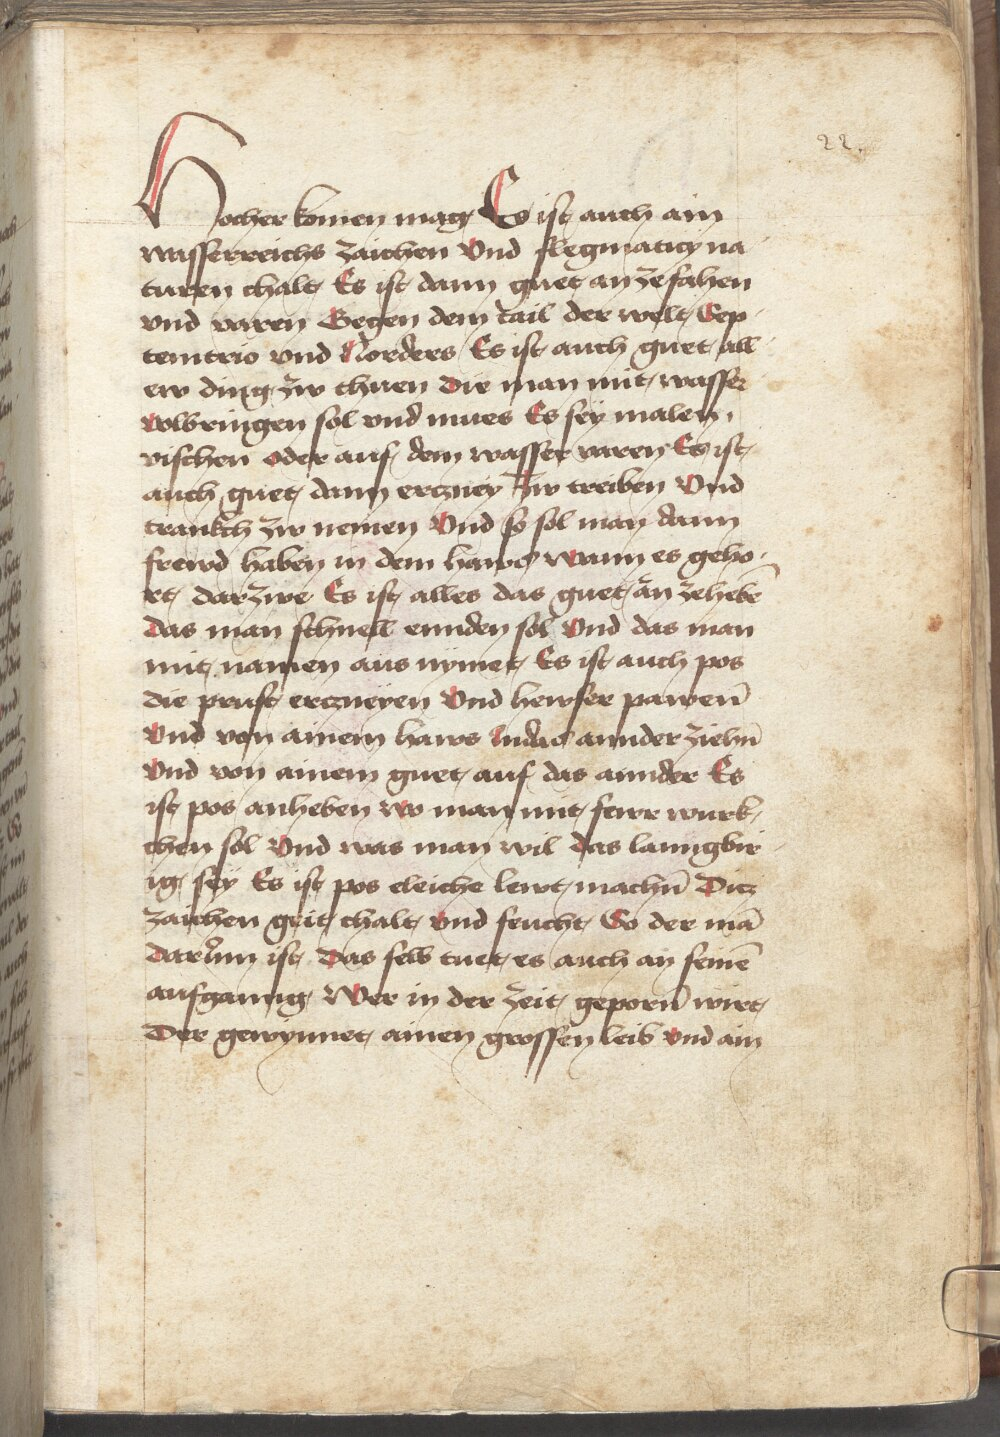 22.
Hocher komen mag Es ist auch ain
wasserreichs zaichen Vnd flegmaticy na
turen chalt Es ist dann guet an ze fahen
vnd varen Gegen dem tail der welt Sep
temtrio vnd Norders Es ist auch guet all
ew ding zw thuen Die man mit wasser
volbringen sol vnd mues Es sey malen
vischen oder auf dem wasser varen Es ist
auch guet dann erczney zw treiben Vnd
trankch zw nemen Vnd so sol man dann
frewd haben in dem haws wann es geho
rt darzwe Es ist alles das guet an zehebē
Das man schnell ennden sol Vnd das man
mit namen aus nymet Es ist auch pos
die prust erczneyen Vnd hewser pawen̄
Vnd von ainem haws annder ziehn̄
Vnd von ainem guet auf das annder Es
ist pos anheben wo man mit fewr wurk
chen sol Vnd was man wil das lanngbir
ig sey Es ist pos eleiche lewt machn̄ Ditz
zaichen geit chalt vnd feucht So der mā
darInn ist Das selb tuet es auch an seinē
aufganng Wer in der zeit geporn̄ wirt
Der gewynnet ainen grossen leib vnd ain